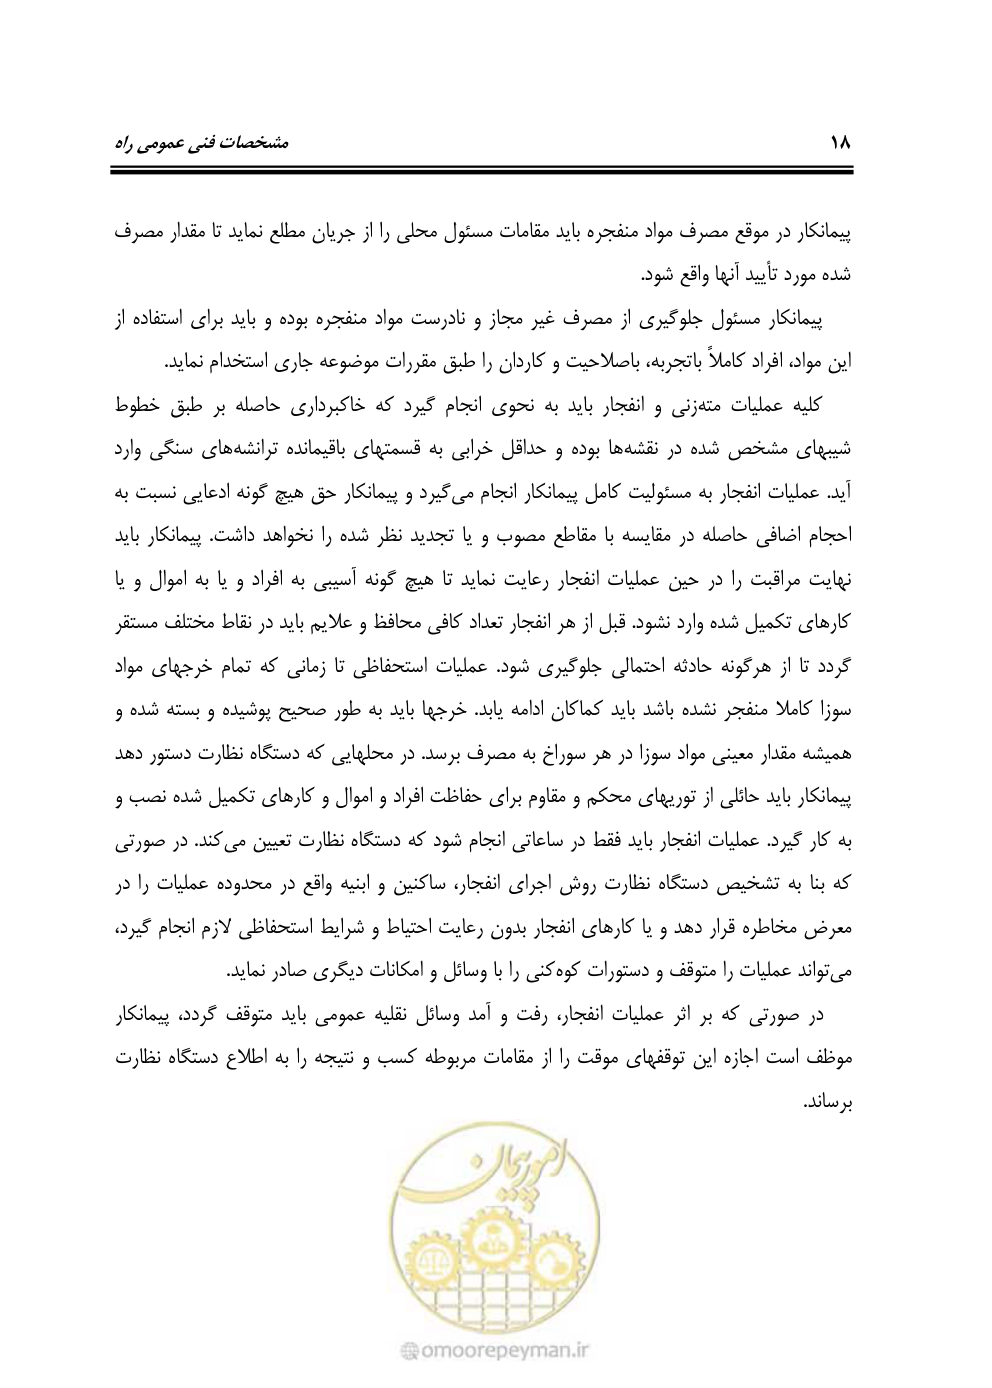 ۱۸ مشخصات فنی عمومی راه
پیمانکار در موقع مصرف مواد منفجره باید مقامات مسئول محلی را از جریان مطلع نماید تا مقدار مصرف
شده مورد تأیید آنها واقع شود.
پیمانکار مسئول جلوگیری از مصرف غیر مجاز و نادرست مواد منفجره بوده و باید برای استفاده از
این مواد، افراد کاملاً باتجربه، باصلاحیت و کاردان را طبق مقررات موضوعه جاری استخدام نماید.
کلیه عملیات مته‌زنی و انفجار باید به نحوی انجام گیرد که خاکبرداری حاصله بر طبق خطوط
شیبهای مشخص شده در نقشه‌ها بوده و حداقل خرابی به قسمتهای باقیمانده ترانشه‌های سنگی وارد
آید. عملیات انفجار به مسئولیت کامل پیمانکار انجام می‌گیرد و پیمانکار حق هیچ گونه ادعایی نسبت به
احجام اضافی حاصله در مقایسه با مقاطع مصوب و یا تجدید نظر شده را نخواهد داشت. پیمانکار باید
نهایت مراقبت را در حین عملیات انفجار رعایت نماید تا هیچ گونه آسیبی به افراد و یا به اموال و یا
کارهای تکمیل شده وارد نشود. قبل از هر انفجار تعداد کافی محافظ و علایم باید در نقاط مختلف مستقر
گردد تا از هرگونه حادثه احتمالی جلوگیری شود. عملیات استحفاظی تا زمانی که تمام خرجهای مواد
سوزا کاملا منفجر نشده باشد باید کماکان ادامه یابد. خرجها باید به طور صحیح پوشیده و بسته شده و
همیشه مقدار معینی مواد سوزا در هر سوراخ به مصرف برسد. در محلهایی که دستگاه نظارت دستور دهد
پیمانکار باید حائلی از توریهای محکم و مقاوم برای حفاظت افراد و اموال و کارهای تکمیل شده نصب و
به کار گیرد. عملیات انفجار باید فقط در ساعاتی انجام شود که دستگاه نظارت تعیین می‌کند. در صورتی
که بنا به تشخیص دستگاه نظارت روش اجرای انفجار، ساکنین و ابنیه واقع در محدوده عملیات را در
معرض مخاطره قرار دهد و یا کارهای انفجار بدون رعایت احتیاط و شرایط استحفاظی لازم انجام گیرد،
می‌تواند عملیات را متوقف و دستورات کوه‌کنی را با وسائل و امکانات دیگری صادر نماید.
در صورتی که بر اثر عملیات انفجار، رفت و آمد وسائل نقلیه عمومی باید متوقف گردد، پیمانکار
موظف است اجازه این توقفهای موقت را از مقامات مربوطه کسب و نتیجه را به اطلاع دستگاه نظارت
برساند.
امور پیمان
@omoorepeyman.ir